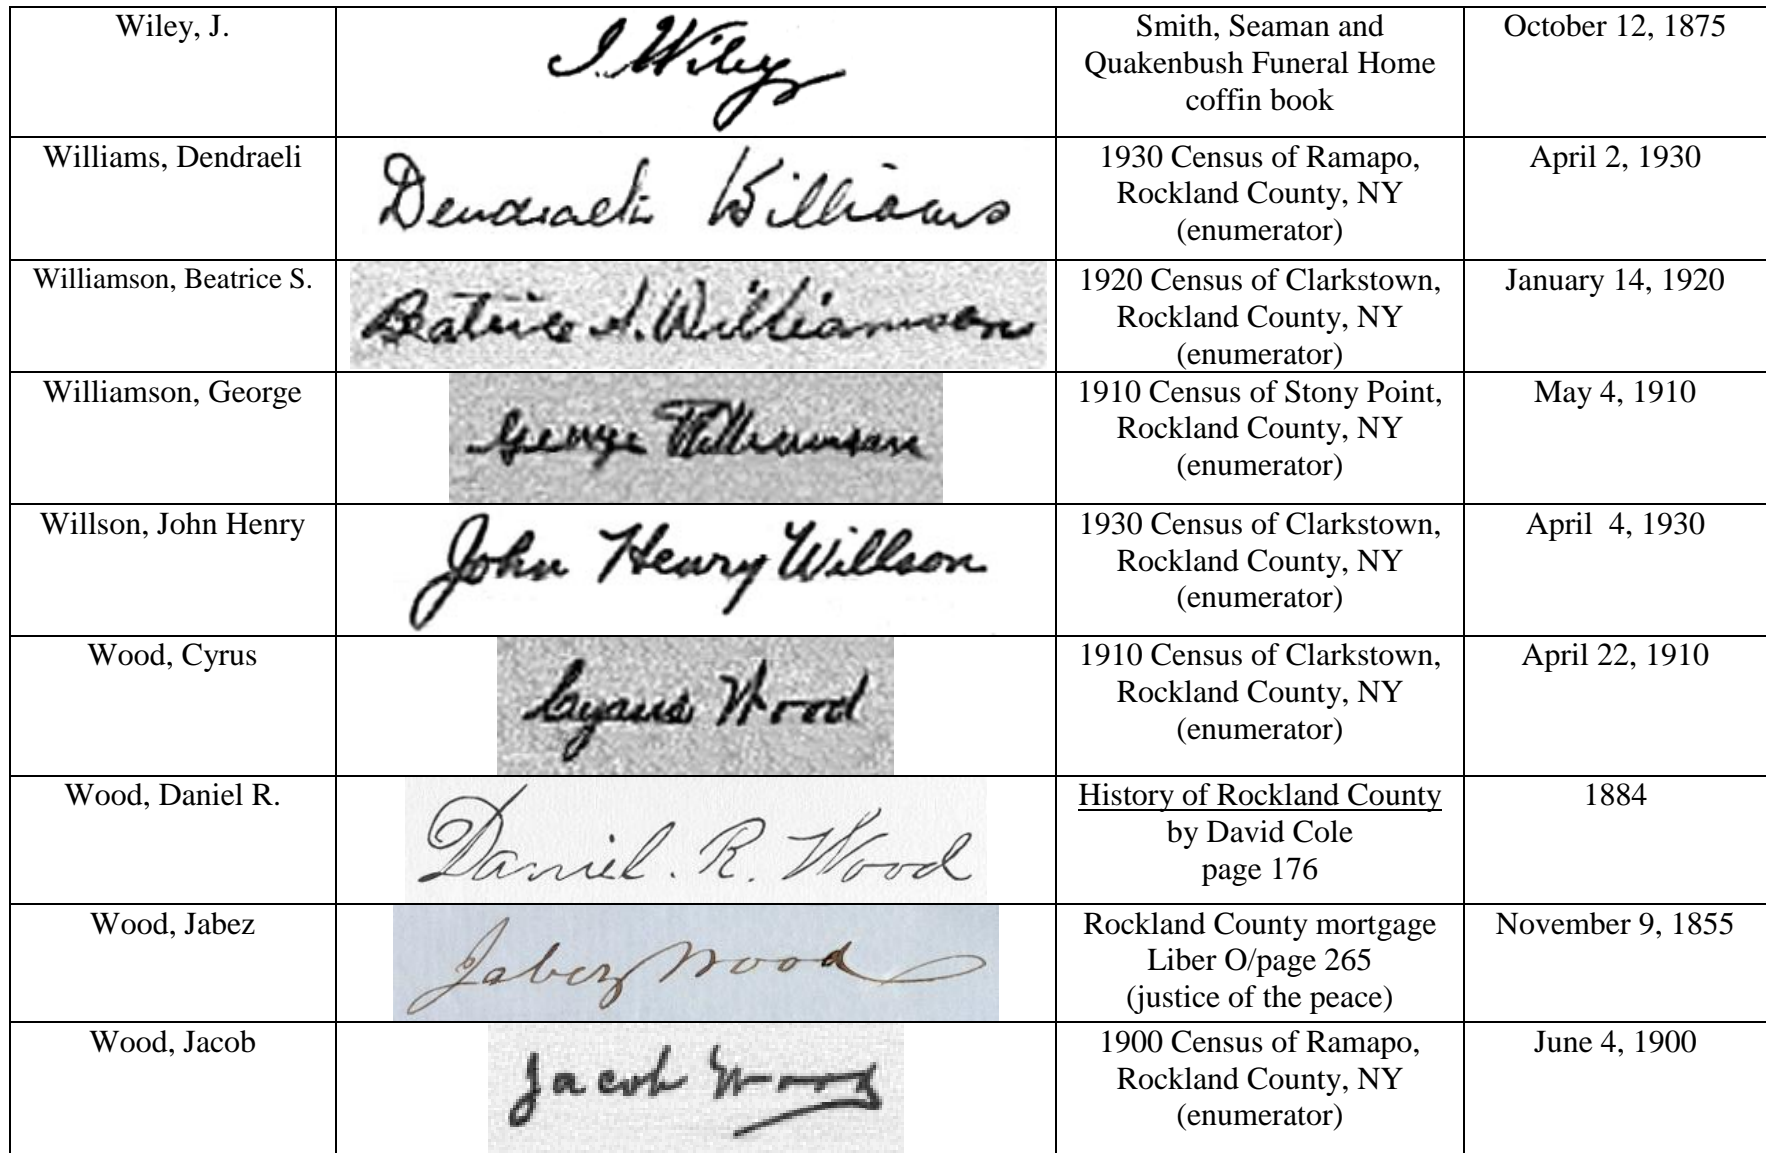 Wiley, J.
J. Wiley
Smith, Seaman and
Quakenbush Funeral Home
coffin book
October 12, 1875
Williams, Dendraeli
Dendraeli Williams
1930 Census of Ramapo,
Rockland County, NY
(enumerator)
April 2, 1930
Williamson, Beatrice S.
Beatrice S. Williamson
1920 Census of Clarkstown,
Rockland County, NY
(enumerator)
January 14, 1920
Williamson, George
George Williamson
1910 Census of Stony Point,
Rockland County, NY
(enumerator)
May 4, 1910
Willson, John Henry
John Henry Willson
1930 Census of Clarkstown,
Rockland County, NY
(enumerator)
April  4, 1930
Wood, Cyrus
Cyrus Wood
1910 Census of Clarkstown,
Rockland County, NY
(enumerator)
April 22, 1910
Wood, Daniel R.
Daniel. R. Wood
History of Rockland County
by David Cole
page 176
1884
Wood, Jabez
Jabez Wood
Rockland County mortgage
Liber O/page 265
(justice of the peace)
November 9, 1855
Wood, Jacob
Jacob Wood
1900 Census of Ramapo,
Rockland County, NY
(enumerator)
June 4, 1900